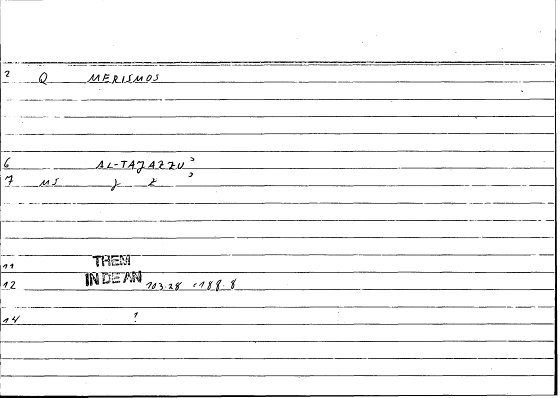 2 Q MERISMOS
6 AL-TAJAZZUʾ
7 MS j z ʾ
11 THEM
12 IN DE AN 103.28 188.8
14 !